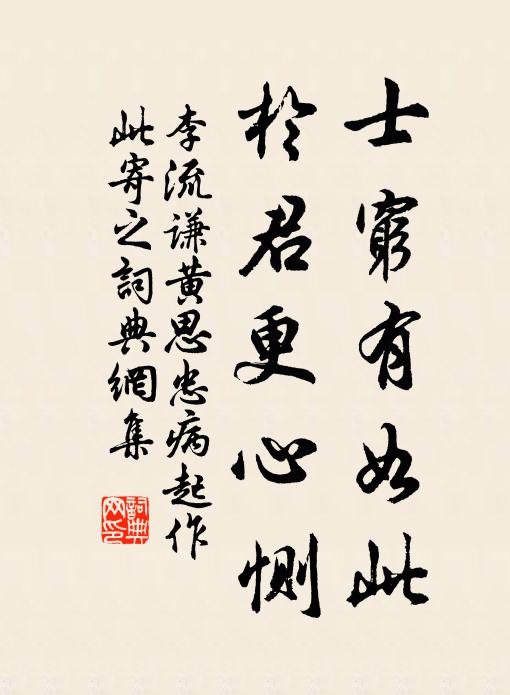 士窮有如此
於君更心惻
李流謙黃思忠病起作
此寄之詞典網集
詞典
网印